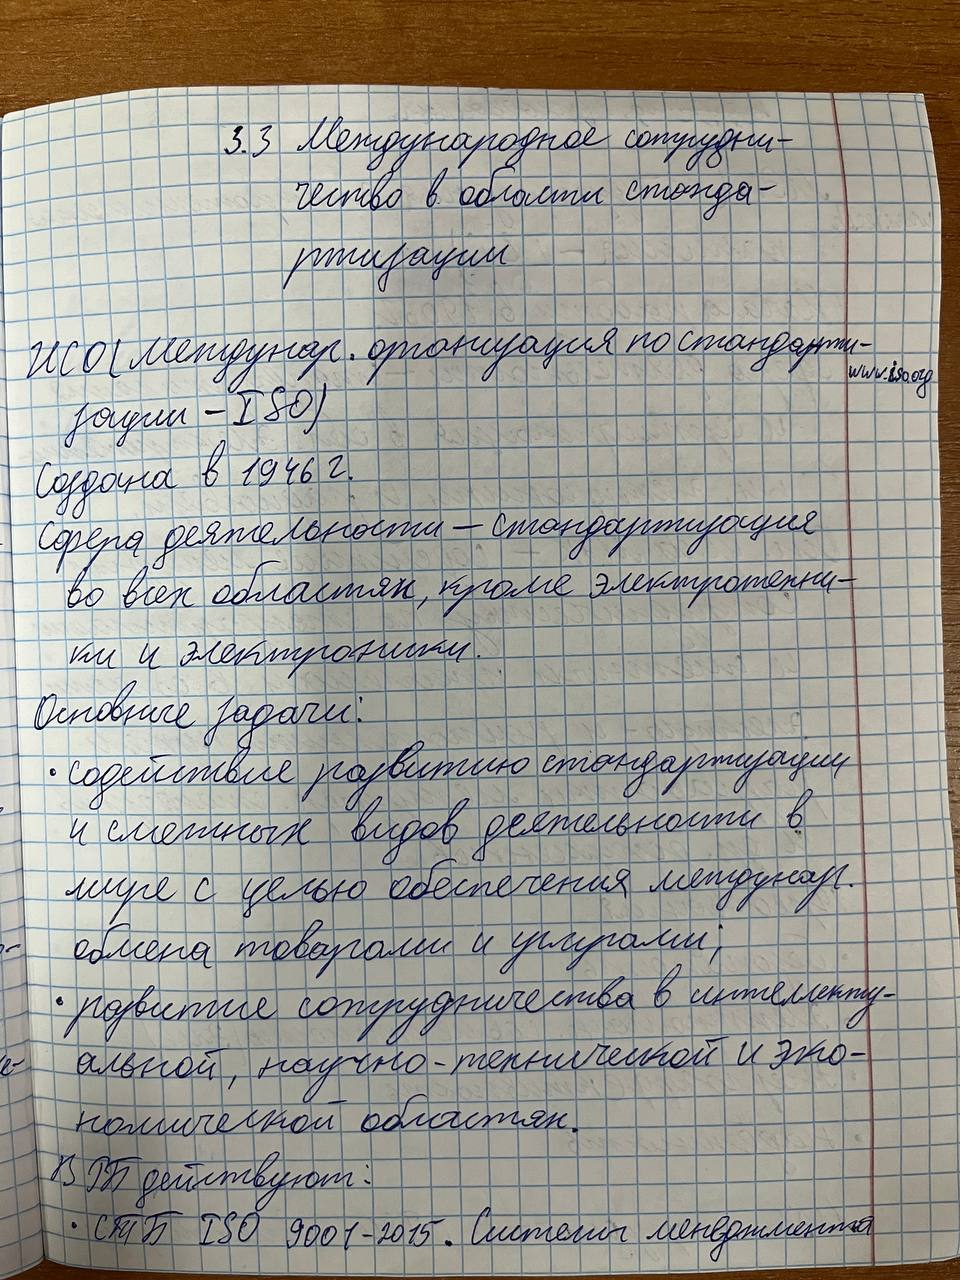 3.3 Международное сотрудни-
чество в области станда-
ртизации
ИСО (Междунар. организация по стандарти-
www.iso.org
зации - ISO)
Создана в 1946 г.
Сфера деятельности — стандартизация
во всех областях, кроме электротехни-
ки и электроники.
Основные задачи:
• содействие развитию стандартизации
и смежных видов деятельности в
мире с целью обеспечения междунар.
обмена товарами и услугами;
• развитие сотрудничества в интеллекту-
альной, научно-технической и эко-
номической областях.
В РБ действуют:
• СТБ ISO 9001-2015. Системы менеджмента